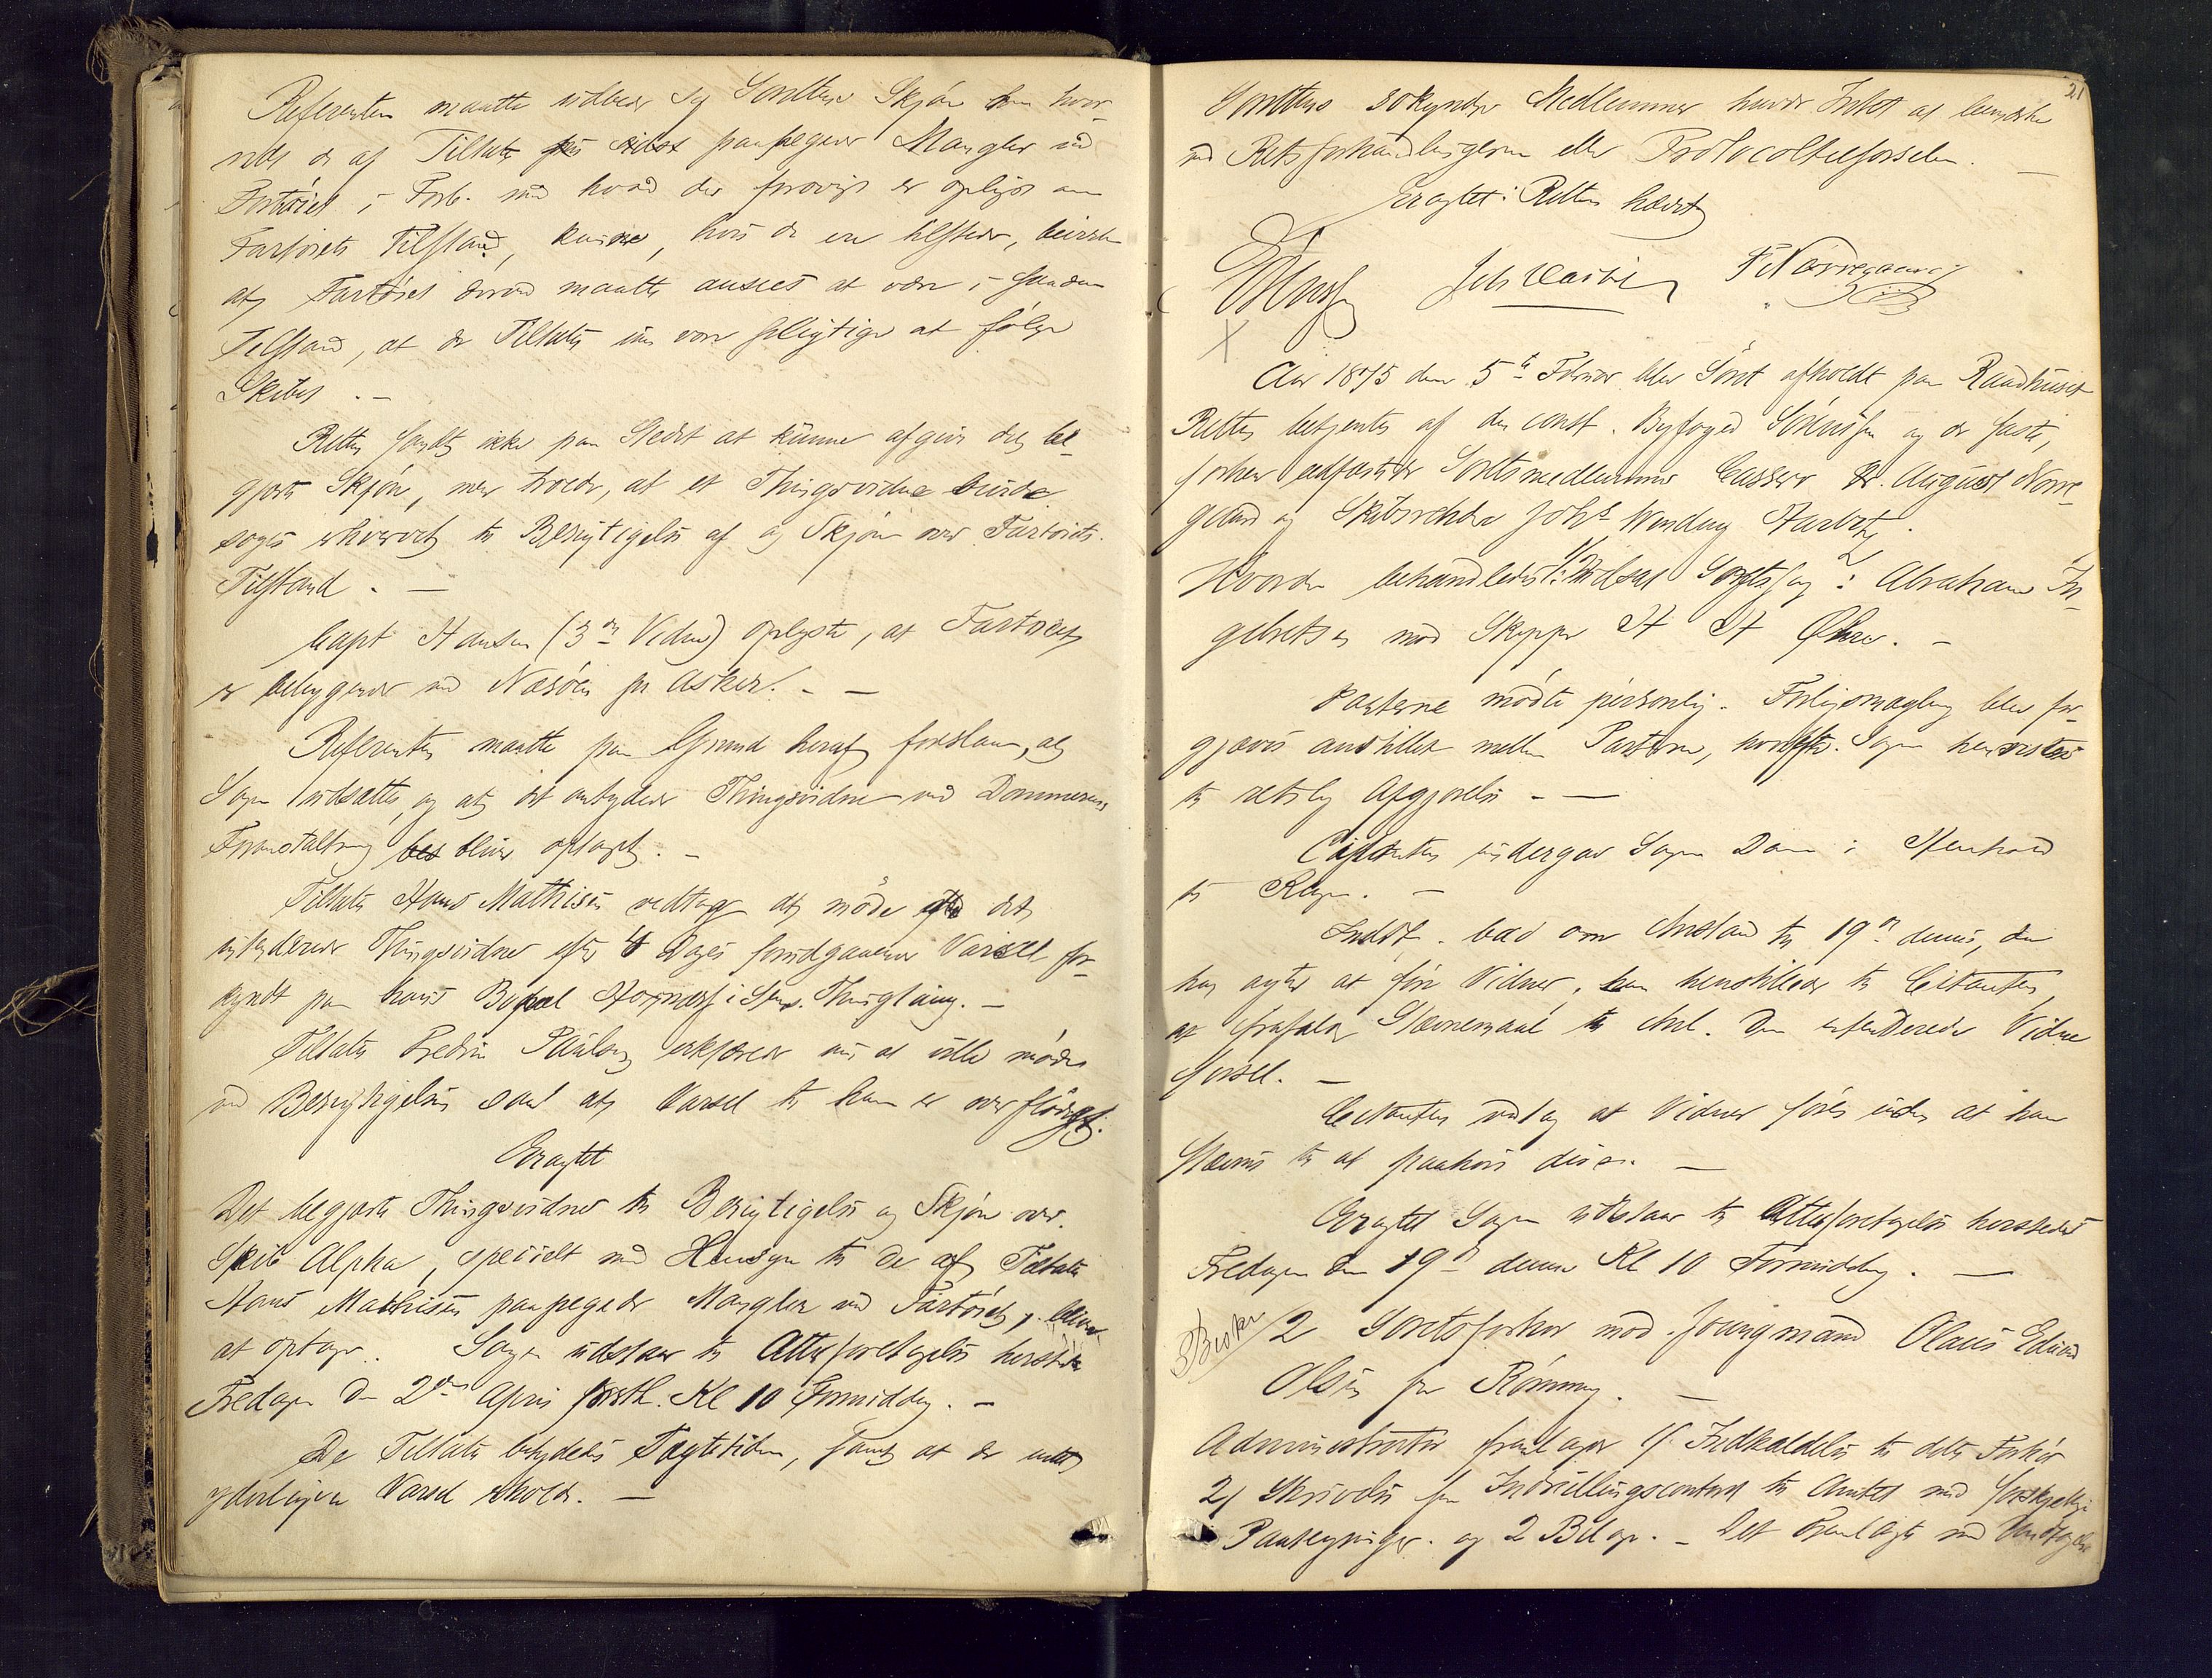 Referenten maatte udbede sig Søretteens Skjøn om hvor-
vidt de af Tiltalte paapegede Mangler ved
Fartøiet i Forb. med hvad der forøvrigt er oplyst om
Fartøiets Tilstand, kunne, hvis de ere tilstede, bevirke
at Fartøiet derved maatte ansees at være i saadan
Tilstand, at de Tiltalte ei vare pligtige at følge
Skibet. -
Retten fandt ikke paa Stedet at kunne afgive det be-
gjærte Skjøn, men troede, at et Thingsvidne burde
søges erhvervet til Besigtigelse af og Skjøn over Fartøiets
Tilstand. -
Capt Hansen (3die Vidne) oplyste, at Fartøiet
er beliggende ved Næsøen pr Asker. - -
Referenten maatte paa Grund heraf foreslaa, at
Sagen udsattes, og at det antydede Thingsvidne ved Dommerens
Foranstaltning bliver optaget. -
Tiltalte Hans Mathisen vedtog at møde ved det
antydede Thingsvidne efter 4 Dages forudgaaende Varsel for-
kyndt paa hans Bopæl i Thinglaug. -
Tiltalte Fredrik Paulsen erklærede ei at ville møde
ved Besigtigelsen samt at Varsel til ham er overflødigt.
Eragtet
Det begjærte Thingsvidne til Besigtigelse og Skjøn over
Skib Alpha, specielt med Hensyn til de af Tiltalte
Hans Mathisen paapegede Mangler ved Fartøiet, bliver
at optage. Sagen udstaaer til Atterforetagelse hersteds
Fredagen den 2den April førstk. Kl 10 Formiddag. -
De Tiltalte betydedes Tægtetiden, samt at de intet
yderligere Varsel erholde. -
21
Søretteens søkyndige Medlemmer havde Intet at bemærke
ved Retsforhandlingerne eller Protocoltilførselen. -
Eragtet: Retten hævet
Joh Warbin F Nørregaard
X
Aar 1875 den 5te Februar blev Søret afholdt paa Raadhuset
Retten betjentes af den const. Byfoged Sørensen og de faste,
forhen edfæstede Søretsmedlemmer Casserer Fr. August Nørre-
gaard og Skibsreder Johs Wending
Hvorda behandledes: 1/ Udsat Søretssag 2: Abraham In-
gebretsen mod Skipper H H Øhre. -
Parterne mødte personlig. Forligsmægling blev for-
gjæves anstillet mellem Parterne, hvorfor Sagen henvistes
til retslig Afgjørelse - -
Citanten undergav Sagen Dom i Henhold
til Klagen. -
Indst. bad om Anstand til 19de dennes, da
han agter at føre Vidner, han henstillede til Citanten
at frafalde Stævnemaal til Anl. den intenderede Vidne-
førsel. -
Citanten vedtog at Vidner føres uden at han
stævnes til at paahøre disse. -
Eragtet Sagen udstaaer til Atterforetagelse hersteds
Fredagen den 19de dennes Kl 10 Formiddag. -
2 Søretsforhør mod Jungmand Olaus Edvard
Olsen for Rømning. -
Administrator fremlagde 1/ Indkaldelse til dette Forhør
2/ Skrivelse fra Indrulleringscontoret til Amtet med forskjellige
Paategninger og 2 Bilag. - Det Fremlagte med Undtagelse